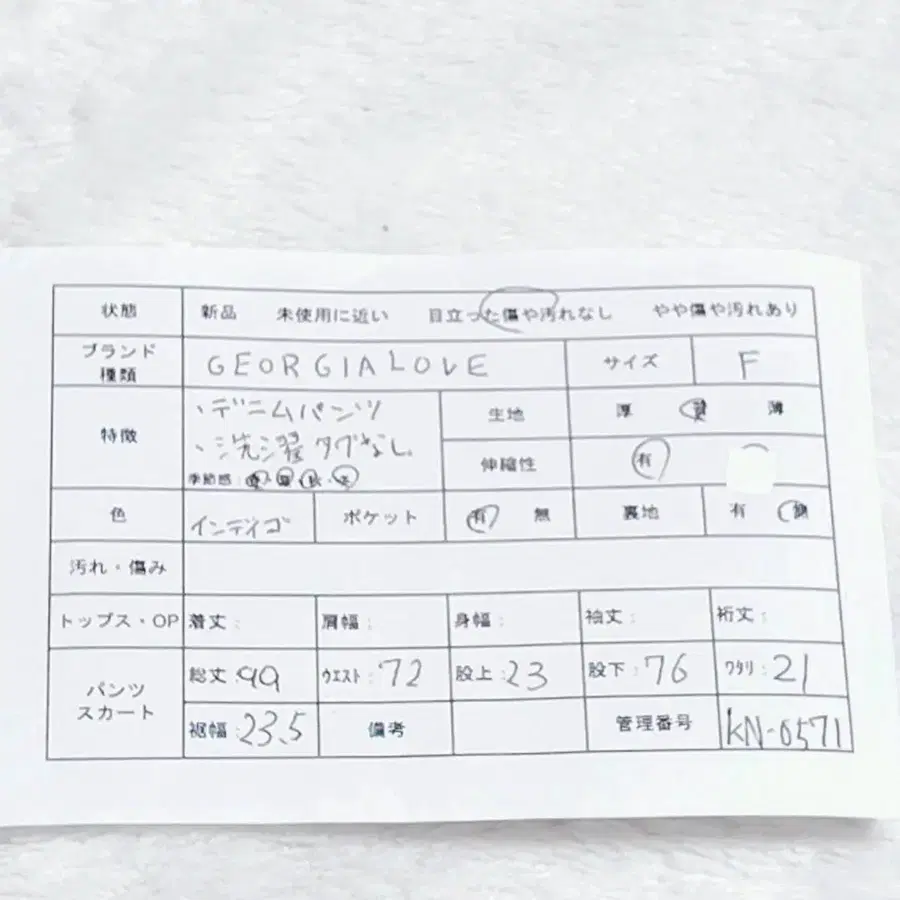 状態 新品 未使用に近い 目立った傷や汚れなし やや傷や汚れあり
ブランド種類 GEORGIALOVE サイズ F
特徴 ・デニムパンツ 生地 厚 薄
・洗濯タグなし 伸縮性 有
季節感:
色 インディゴ ポケット 有 無 裏地 有 無
汚れ・傷み
トップス・OP 着丈: 肩幅: 身幅: 袖丈: 裄丈:
パンツ スカート 総丈:99 ウエスト:72 股上:23 股下:76 ワタリ:21
裾幅:23.5 備考 管理番号 KN-0571